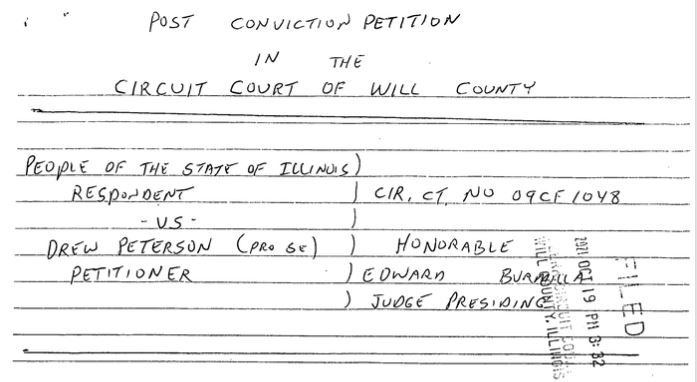 POST CONVICTION PETITION
IN THE
CIRCUIT COURT OF WILL COUNTY
PEOPLE OF THE STATE OF ILLINOIS)
RESPONDENT ) CIR. CT. NO 09CF1048
-VS- )
DREW PETERSON (PRO SE) ) HONORABLE
PETITIONER ) EDWARD
) JUDGE PRESIDING
FILED
2021 OCT 19 PM 3:32
WILL COUNTY, ILLINOIS